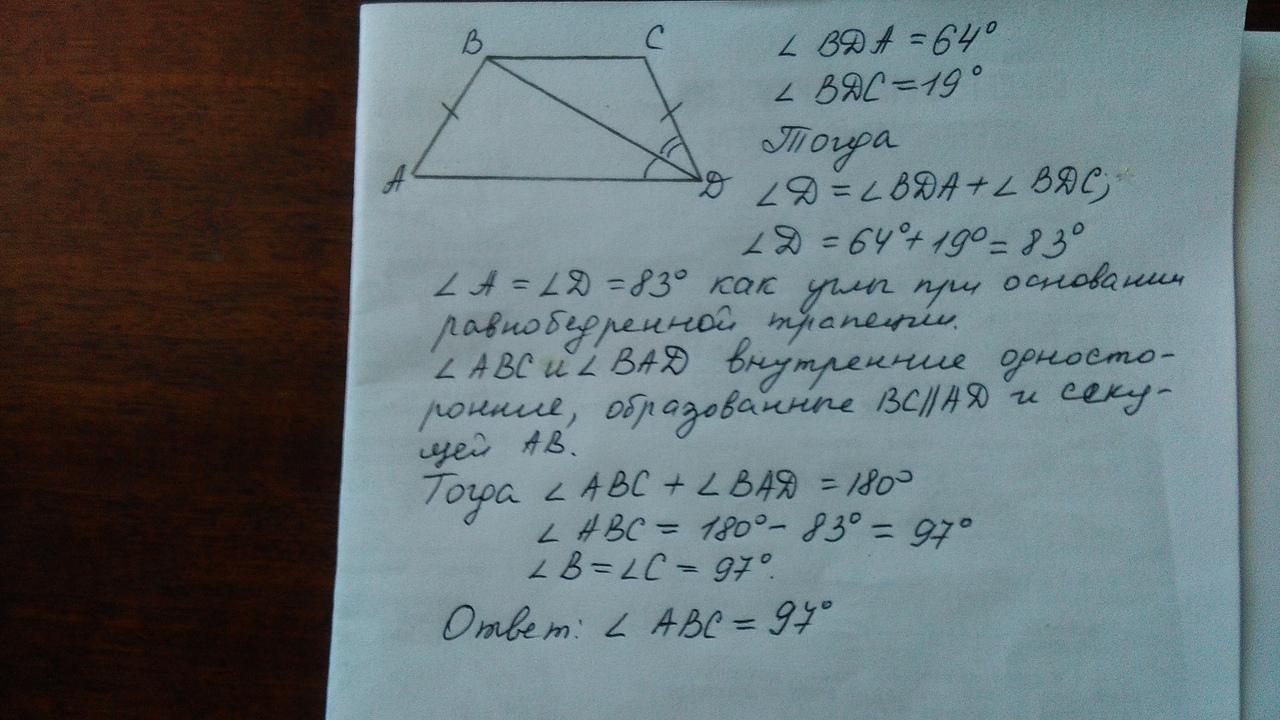 B C
A D
∠ BDA = 64°
∠ BDC = 19°
Тогда
∠D = ∠BDA + ∠BDC;
∠D = 64° + 19° = 83°
∠A = ∠D = 83° как углы при основании
равнобедренной трапеции.
∠ABC и ∠BAD внутренние односто-
ронние, образованные BC||AD и секу-
щей AB.
Тогда ∠ABC + ∠BAD = 180°
∠ABC = 180° - 83° = 97°
∠B = ∠C = 97°.
Ответ: ∠ ABC = 97°